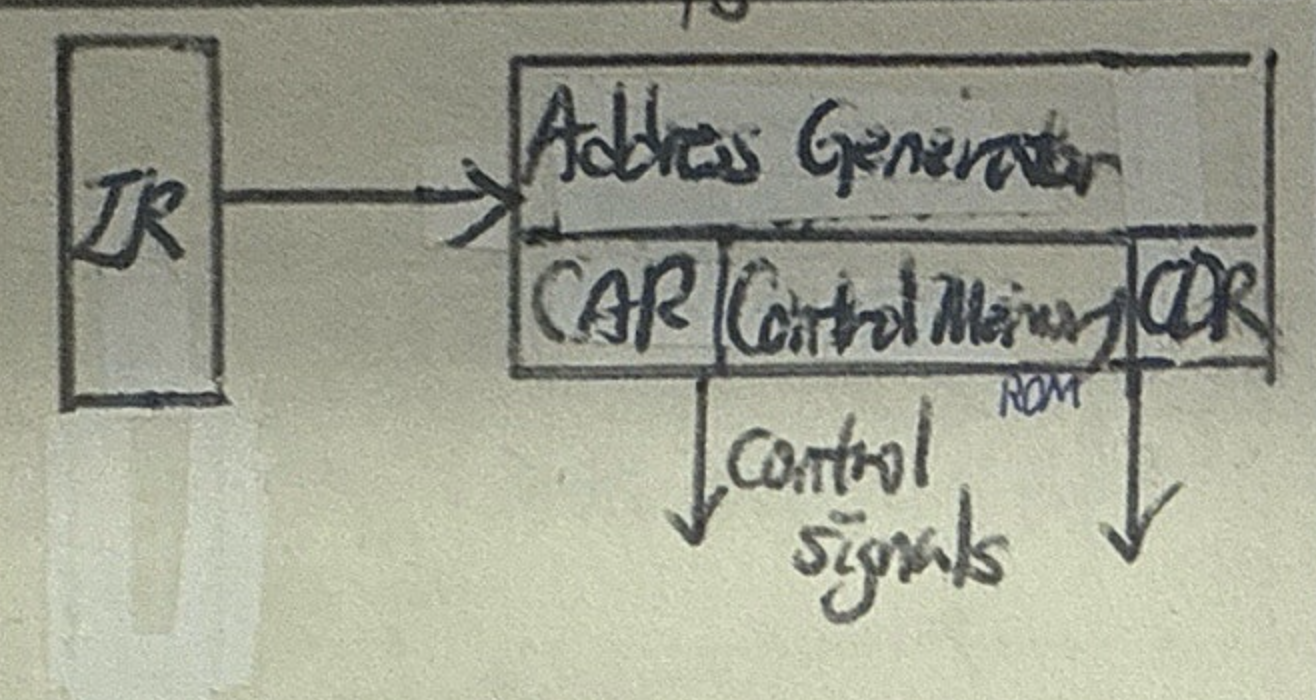 IR
Address Generator
CAR Control Memory CDR
ROM
control
signals